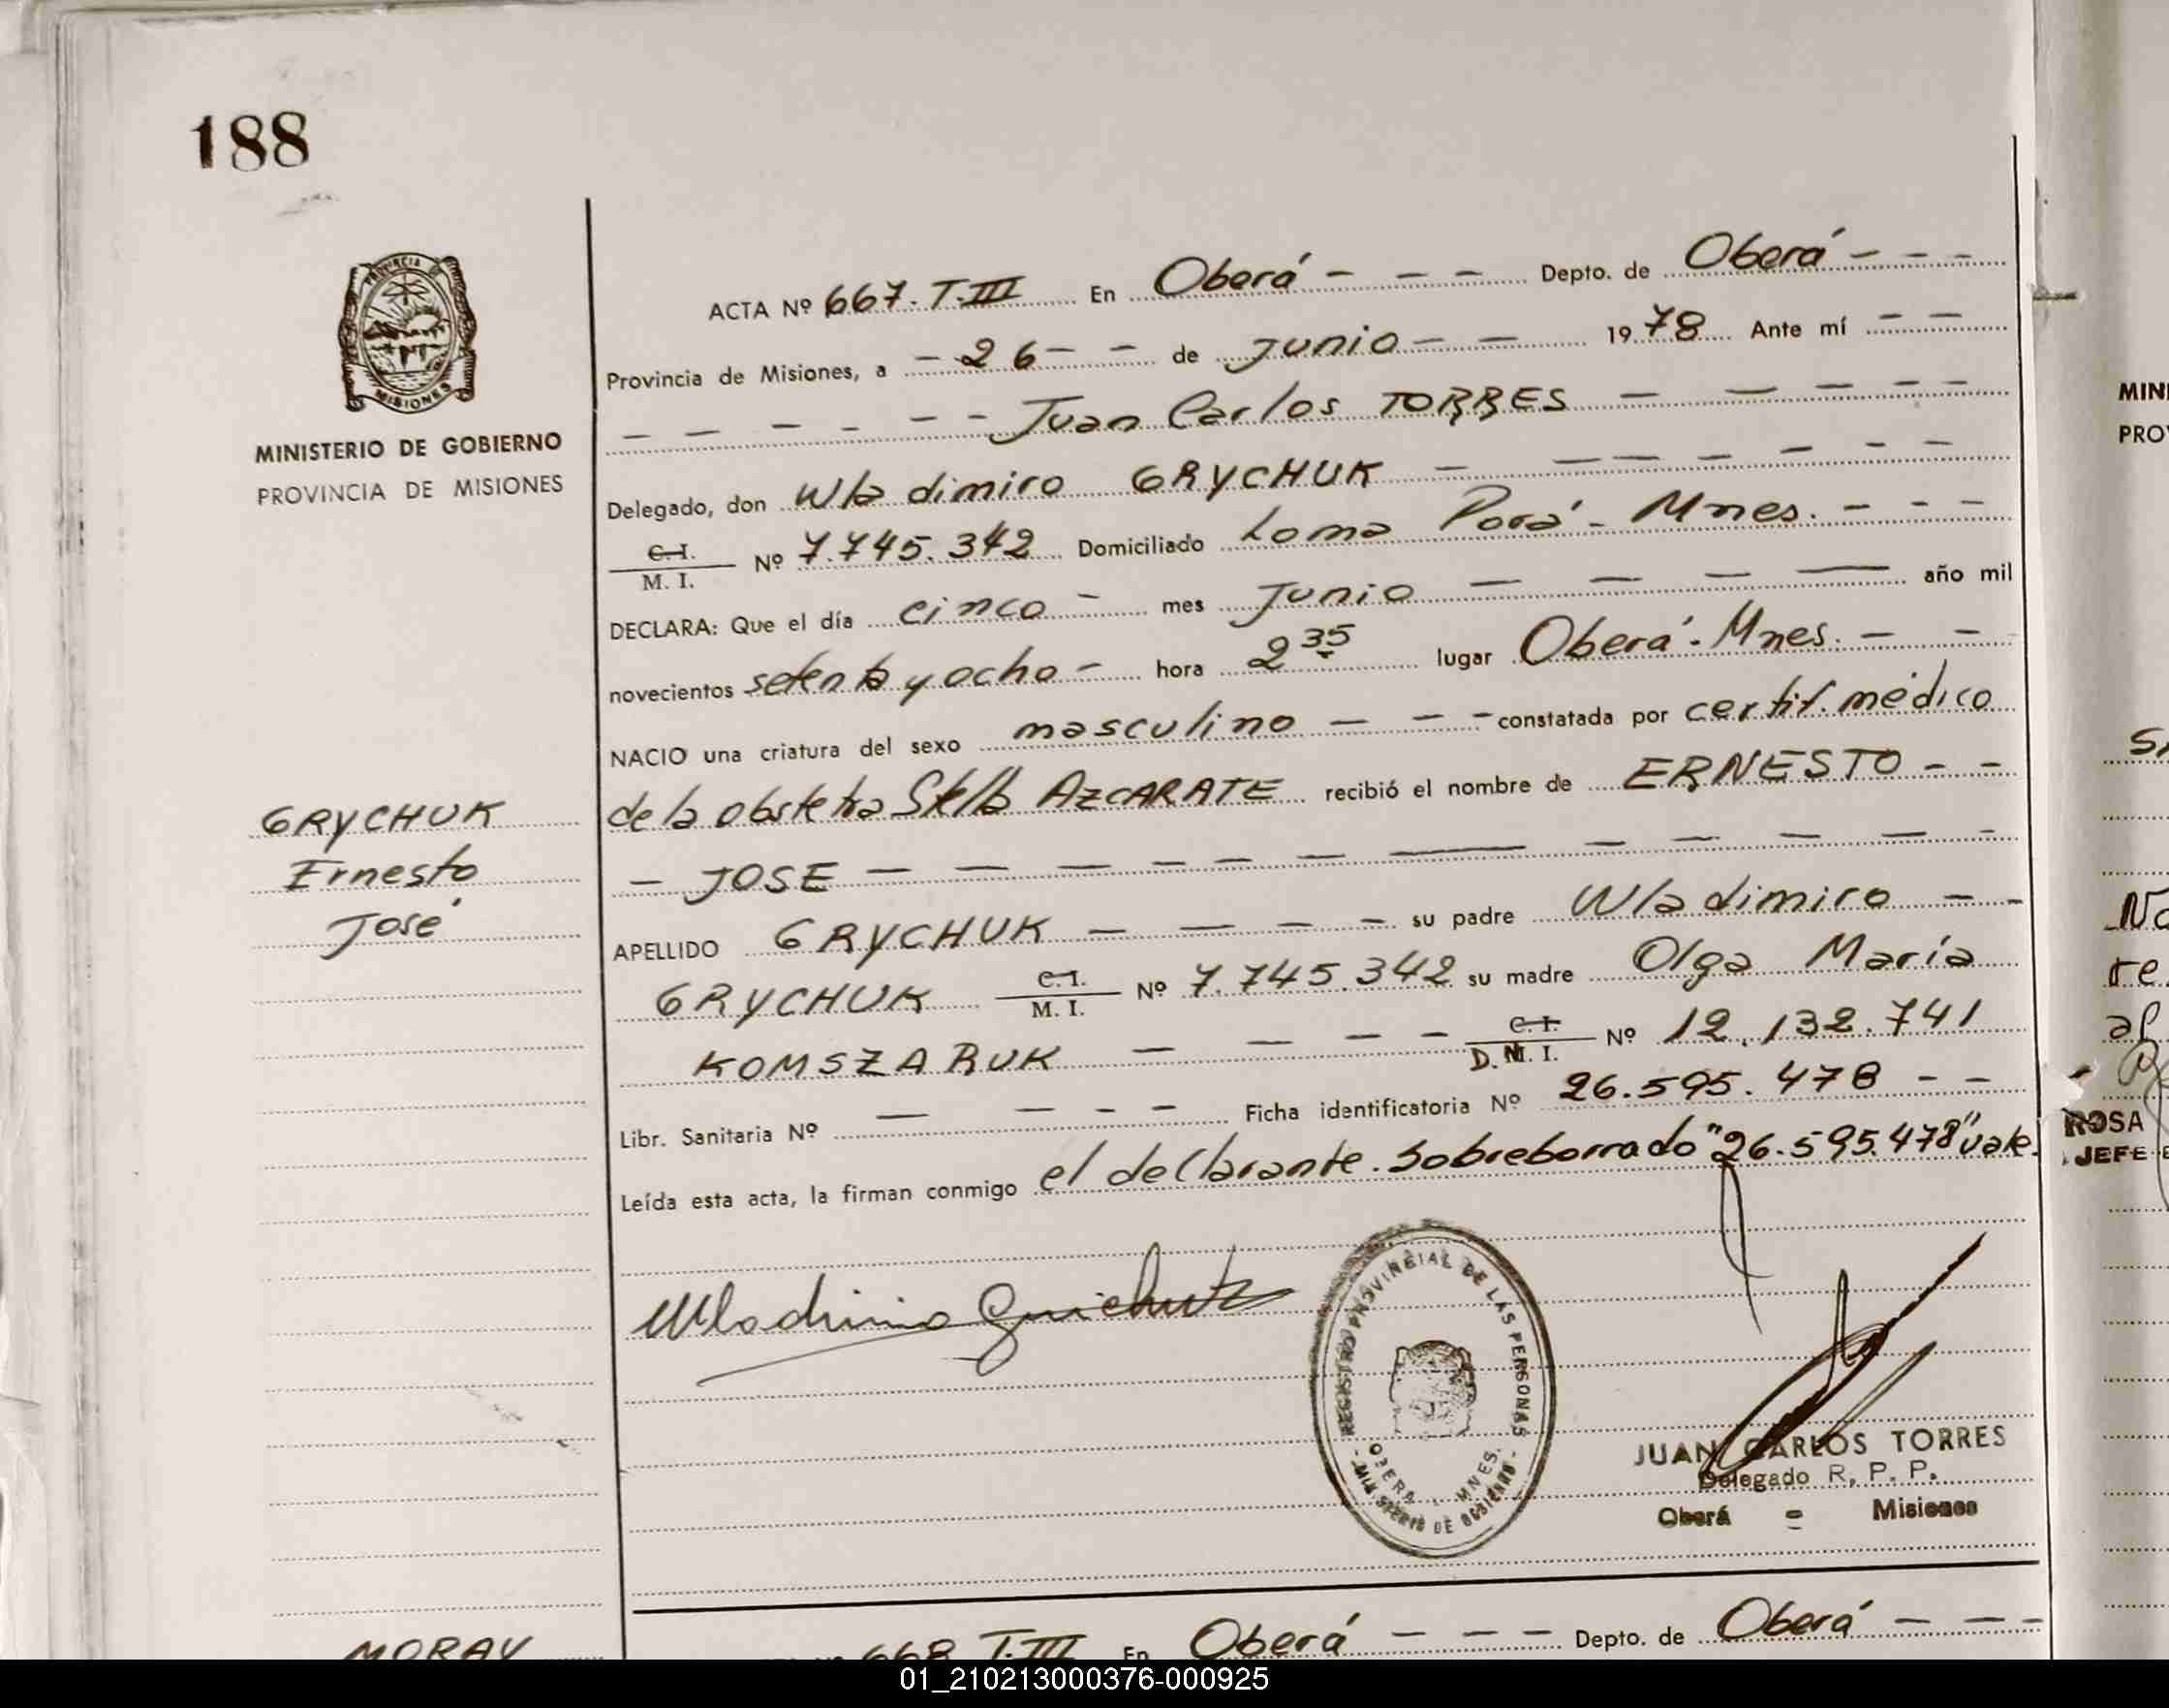 188
PROVINCIA DE
MISIONES
MINISTERIO DE GOBIERNO
PROVINCIA DE MISIONES
GRYCHUK
Ernesto
José
ACTA Nº 667. T.III En Oberá - - - - Depto. de Oberá - - -
Provincia de Misiones, a - 26 - - de Junio - - 1978 Ante mí - -
- - - - - - Juan Carlos TORRES - - - - -
Delegado, don Wladimiro GRYCHUK - - - - - - -
C.I.
M. I. Nº 7.745.342 Domiciliado Loma Porá - Mnes. - - -
DECLARA: Que el día cinco - mes Junio - - - - año mil
novecientos setenta y ocho - hora 2 35 lugar Oberá - Mnes. - -
NACIO una criatura del sexo masculino - - - constatada por certif. médico
de la obstetra Stella AZCARATE recibió el nombre de ERNESTO - -
- JOSE - - - - - - - - - - -
APELLIDO GRYCHUK - - - - su padre Wladimiro - -
GRYCHUK C.I. M. I. Nº 7.745.342 su madre Olga María
KOMSZARUK - - - - C.I. D.N.I. Nº 12.132.741
Libr. Sanitaria Nº - - - - Ficha identificatoria Nº 26.595.478 - -
Leída esta acta, la firman conmigo el declarante. Sobreborrado "26.595.478" vale.
REGISTRO PROVINCIAL DE LAS PERSONAS
OBERA - MNES.
- MINISTERIO DE GOBIERNO -
JUAN CARLOS TORRES
Delegado R. P. P.
Oberá - Misiones
MORAY
668 T.III En Oberá - - - Depto. de Oberá - - -
MIN
PRO
ROSA
JEFE
01_210213000376-000925